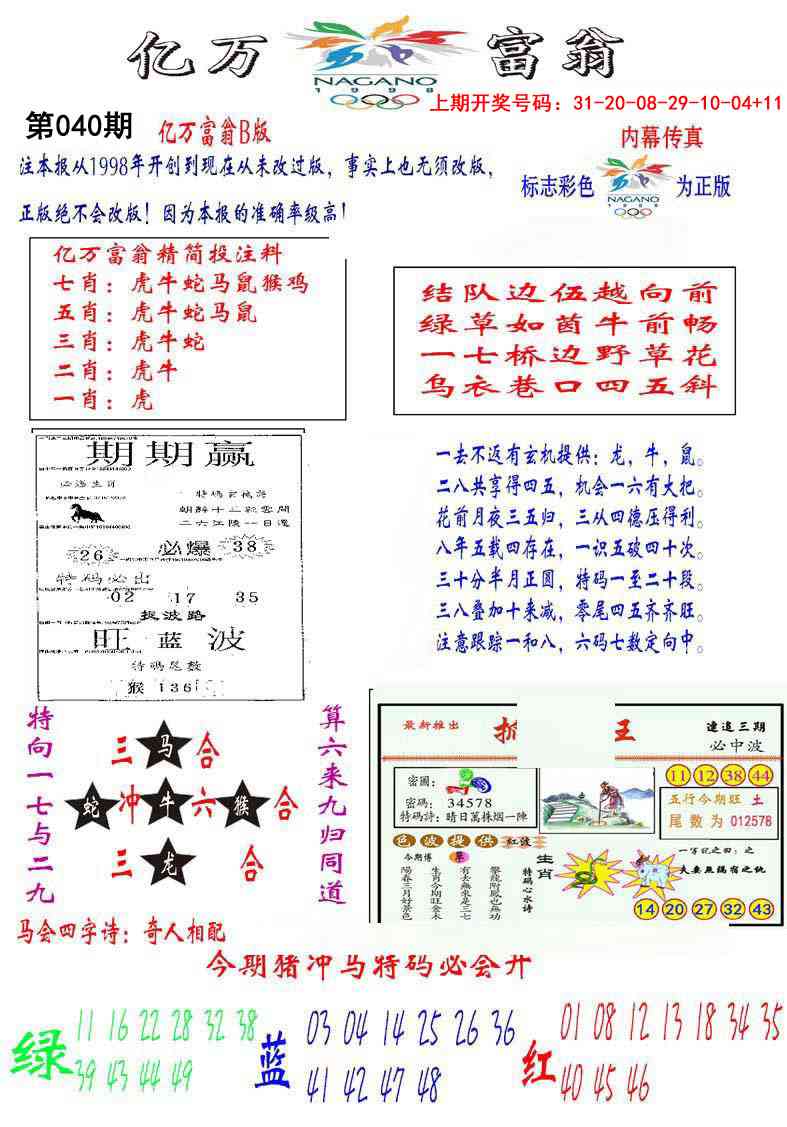 亿万富翁
NAGANO
1998
上期开奖号码：31-20-08-29-10-04+11
第040期 亿万富翁B版
内幕传真
注本报从1998年开创到现在从未改过版，事实上也无须改版，
标志彩色 NAGANO 1998 为正版
正版绝不会改版！因为本报的准确率级高！
亿万富翁精简投注料
七肖：虎牛蛇马鼠猴鸡
五肖：虎牛蛇马鼠
三肖：虎牛蛇
二肖：虎牛
一肖：虎
结队边伍越向前
绿草如茵牛前畅
一七桥边野草花
乌衣巷口四五斜
期期赢
必选生肖
二六江陵一日還
26 必爆 38
特码必出
02 17 35
捉波路
旺蓝波
特碼尾数
猴 136
一去不返有玄机提供：龙，牛，鼠。
二八共享得四五，机会一六有大把。
花前月夜三五归，三从四德压得利。
八年五载四存在，一识五破四十次。
三十分半月正圆，特码一至二十段。
三八叠加十来减，零尾四五齐齐旺。
注意跟踪一和八，六码七数定向中。
特向一七与二九
三马合
蛇冲牛六猴合
三龙合
算六来九归同道
最新推出
王
連追三期
必中波
密圖：
密码：34578
特码詩：晴日萬株烟一陣
11 12 38 44
五行今期旺 土
尾数为 012578
色波提供 红波
今期博 草
陽春三月好景色
生肖今期旺金木
有去無來是三七
攀龍附鳳也無功
特码心水诗
生肖
14 20 27 32 43
马会四字诗：奇人相配
今期猪冲马特码必会开
绿
11 16 22 28 32 38
39 43 44 49
蓝
03 04 14 25 26 36
41 42 47 48
红
01 08 12 13 18 34 35
40 45 46